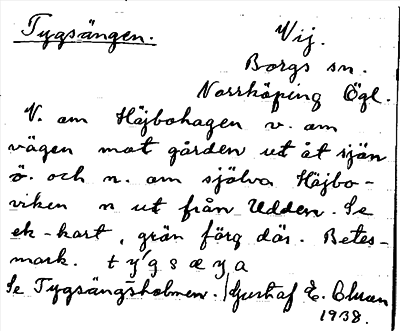 Tygsängen.
Vij.
Borgs sn.
Norrköping Ögl.
V. om Höjbohagen v. om
vägen mot gården ut åt sjön
ö. och n. om själva Höjbo-
viken n ut från Udden. Se
ek-kart, grön färg där. Betes-
mark. t y ́ g s æ ŋ a
Se Tygsängsholmen. Gustaf E.
1938.